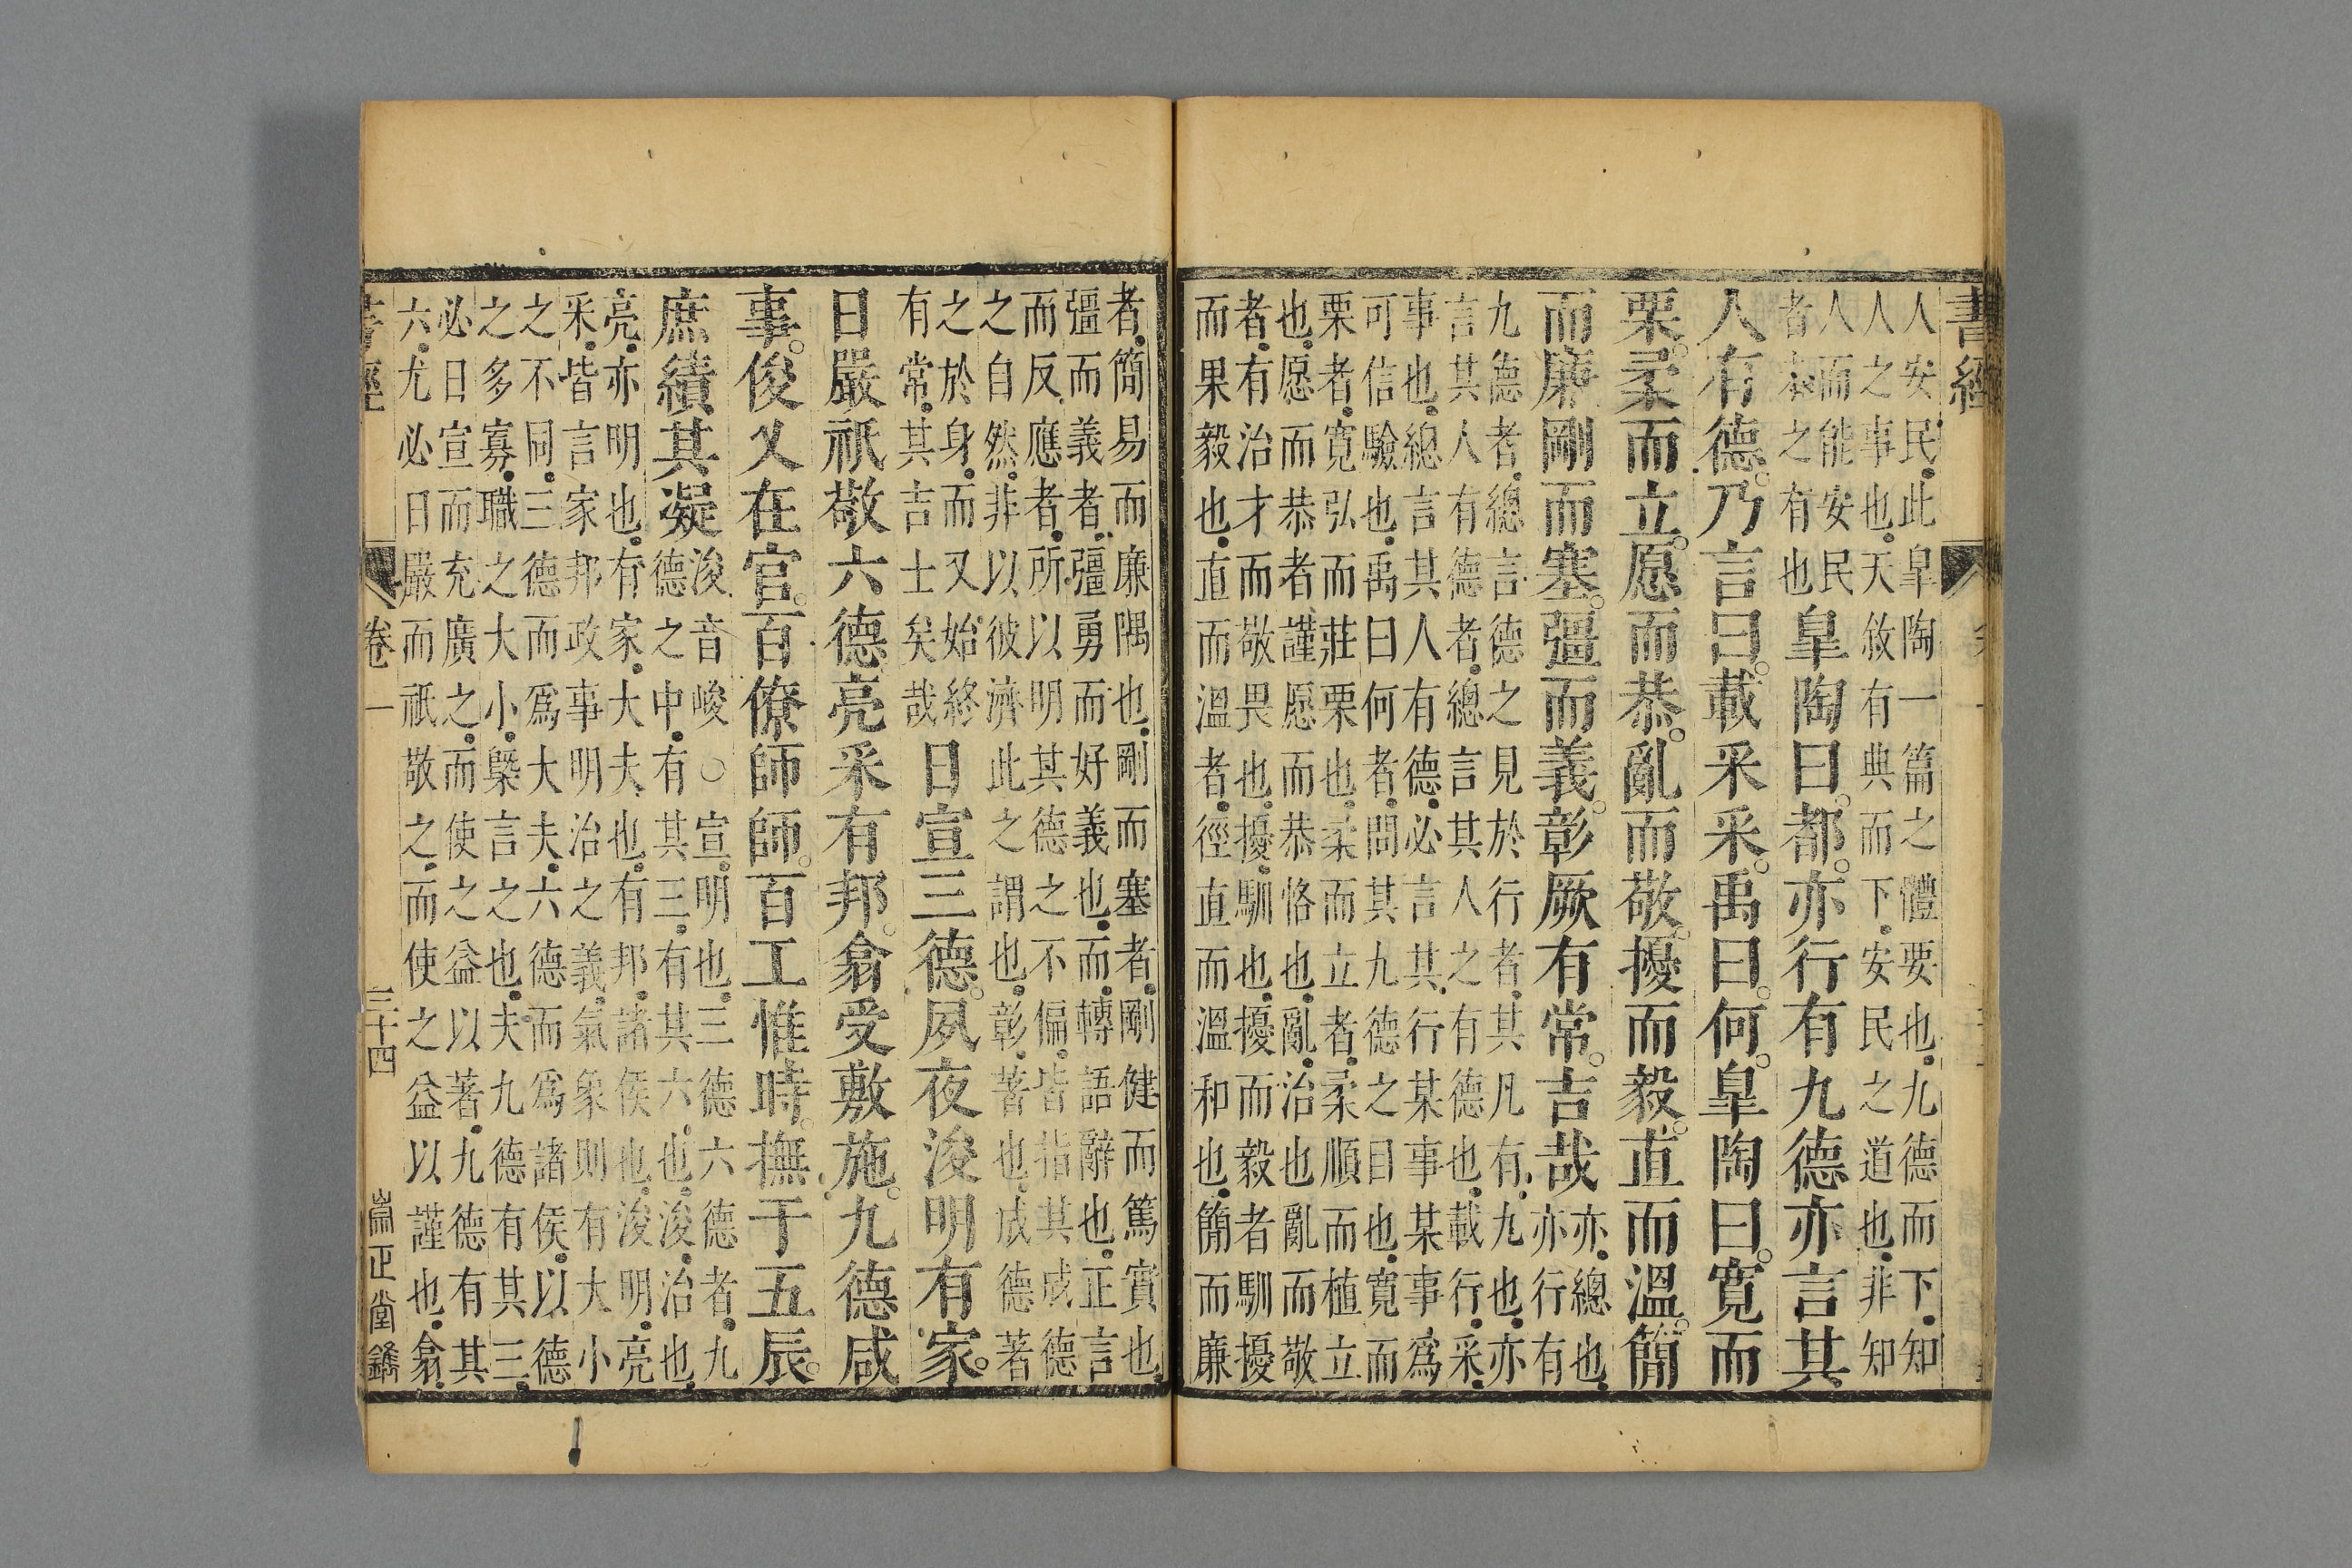 書經
人安民此皐陶一篇之體要也九德而下知
人之事也天敘有典而下安民之道也非知
人而能安民
者未之有也
皐陶曰都亦行有九德亦言其
人有德乃言曰載采采禹曰何皐陶曰寬而
栗柔而立愿而恭亂而敬擾而毅直而溫簡
而廉剛而塞彊而義彰厥有常吉哉
亦總也
亦行有
九德者總言德之見於行者其凡有九也亦
言其人有德者總言其人之有德也載行采
事也總言其人有德必言其行某事某事爲
可信驗也禹曰何者問其九德之目也寬而
栗者寬弘而莊栗也柔而立者柔順而植立
也愿而恭者謹愿而恭恪也亂治也亂而敬
者有治才而敬畏也擾馴也擾而毅者馴擾
而果毅也直而溫者徑直而溫和也簡而廉
者簡易而廉隅也剛而塞者剛健而篤實也
彊而義者彊勇而好義也而轉語辭也正言
而反應者所以明其德之不偏皆指其成德
之自然非以彼濟此之謂也彰著也成德著
之於身而又始終
有常其吉士矣哉
日宣三德夙夜浚明有家
日嚴祇敬六德亮采有邦翕受敷施九德咸
事俊乂在官百僚師師百工惟時撫于五辰
庶績其凝
浚音峻○宣明也三德六德者九
德之中有其三有其六也浚治也
亮亦明也有家大夫也有邦諸侯也浚明亮
采皆言家邦政事明治之義氣象則有大小
之不同三德而爲大夫六德而爲諸侯以德
之多寡職之大小槩言之也夫九德有其三
必日宣而充廣之而使之益以著九德有其
六尤必日嚴而祇敬之而使之益以謹也翕
書經
卷一
三十四
崇正堂鐫